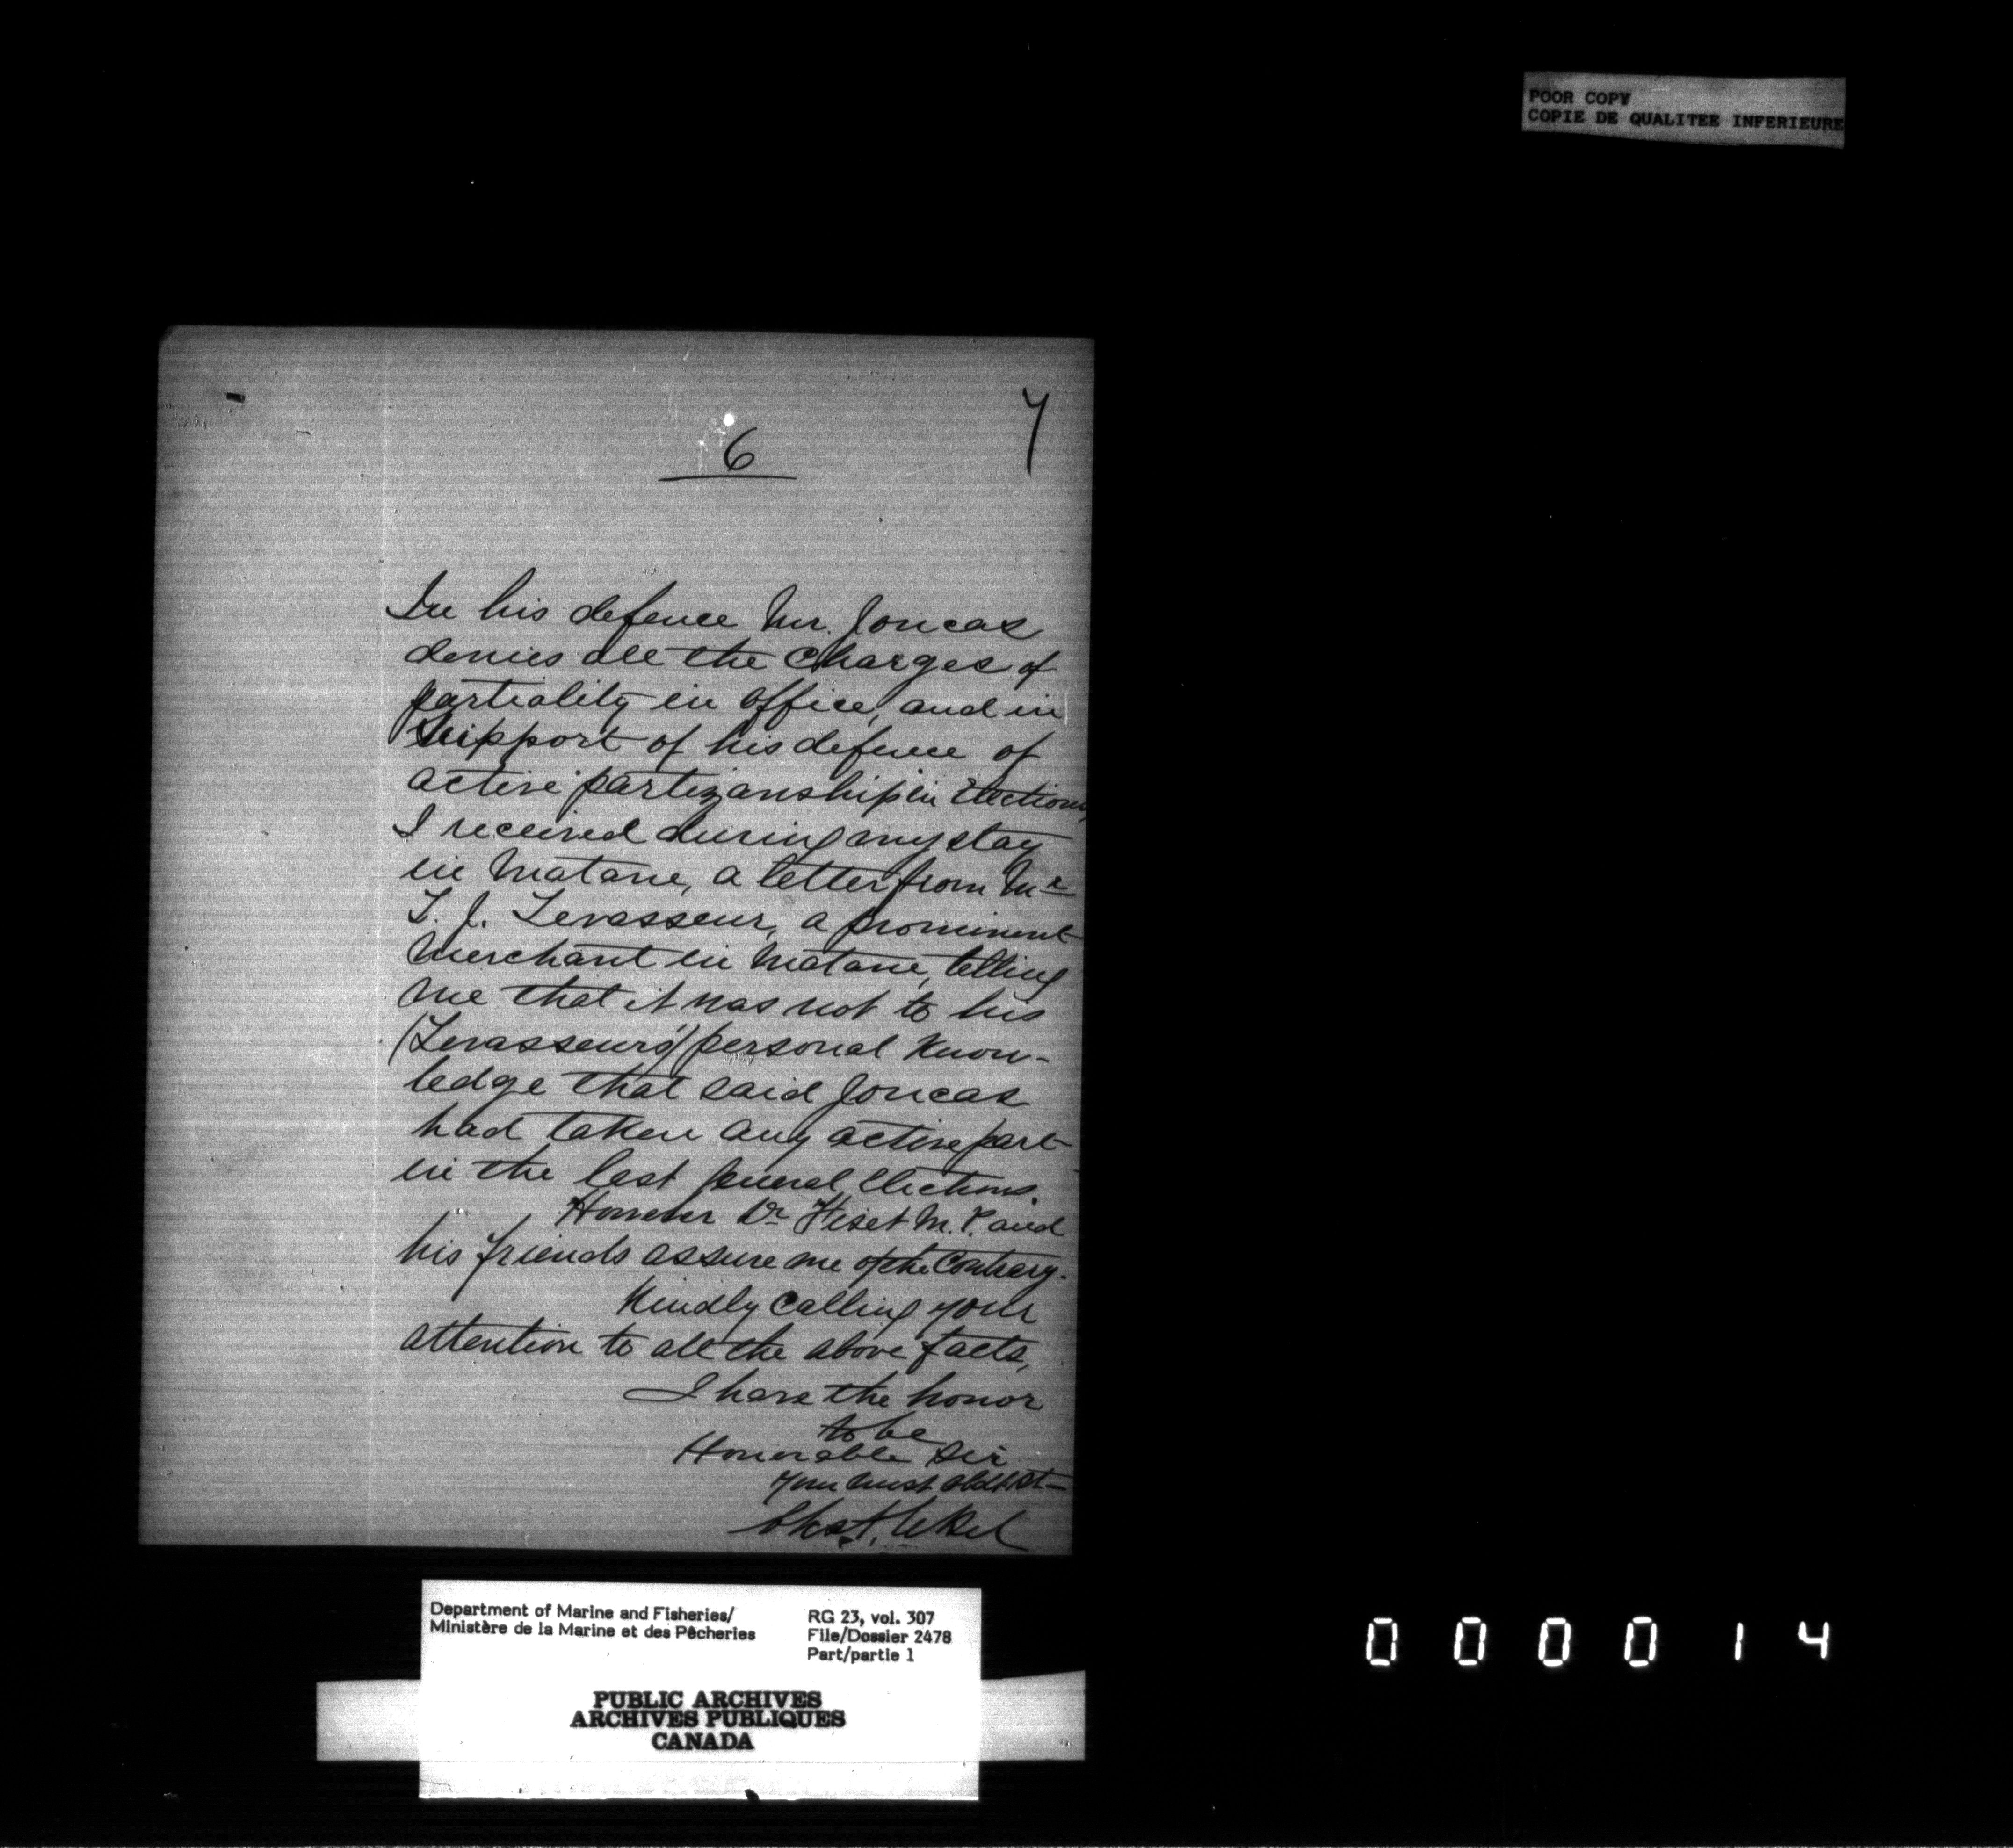 POOR COPY
COPIE DE QUALITEE INFERIEURE
7
6
In his defence Mr. Joncas
denies all the charges of
partiality in office, and in
support of his defence of
active partizanship in Elections,
I received during my stay
in Matane, a letter from Mr
T. J. Levasseur, a prominent
merchant in Matane, telling
me that it was not to his
(Levasseur's) personal know-
ledge that said Joncas
had taken any active part
in the last general Elections.
However Dr Fiset M.P. and
his friends assure me of the Contrary.
Kindly calling your
attention to all the above facts,
I have the honor
to be
Honorable Sir
Your most
Department of Marine and Fisheries/
Ministère de la Marine et des Pêcheries
RG 23, vol. 307
File/Dossier 2478
Part/partie 1
PUBLIC ARCHIVES
ARCHIVES PUBLIQUES
CANADA
000014